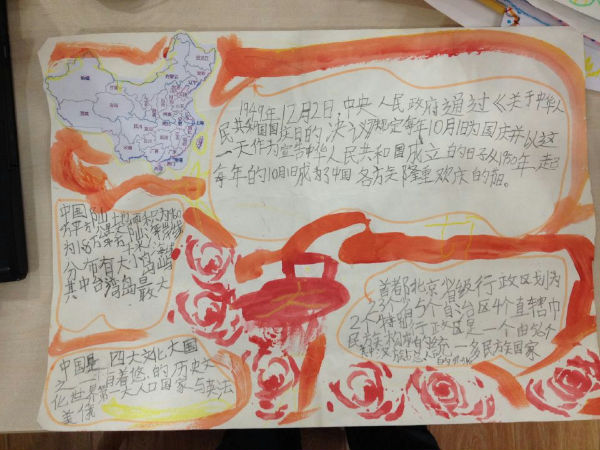 1949年12月2日，中央人民政府通过《关于中华人
民共和国国庆日的决议》规定每年10月1日为国庆并以这
一天作为宣告中华人民共和国成立的日子从1950年起
每年的10月1日成为了中国各方族隆重欢庆的
中国陆土地面积只为960
万平方公里
分布有大小岛
其中台湾岛最大
首都北京省级行政区划为
23个省5个自治区4个直辖市
2个特别行政区是一个由56个
民族 多民族国家
中国是 四大文化大国
之一 有着悠 的历史文
化世界第一大人口国家与英法
美俄